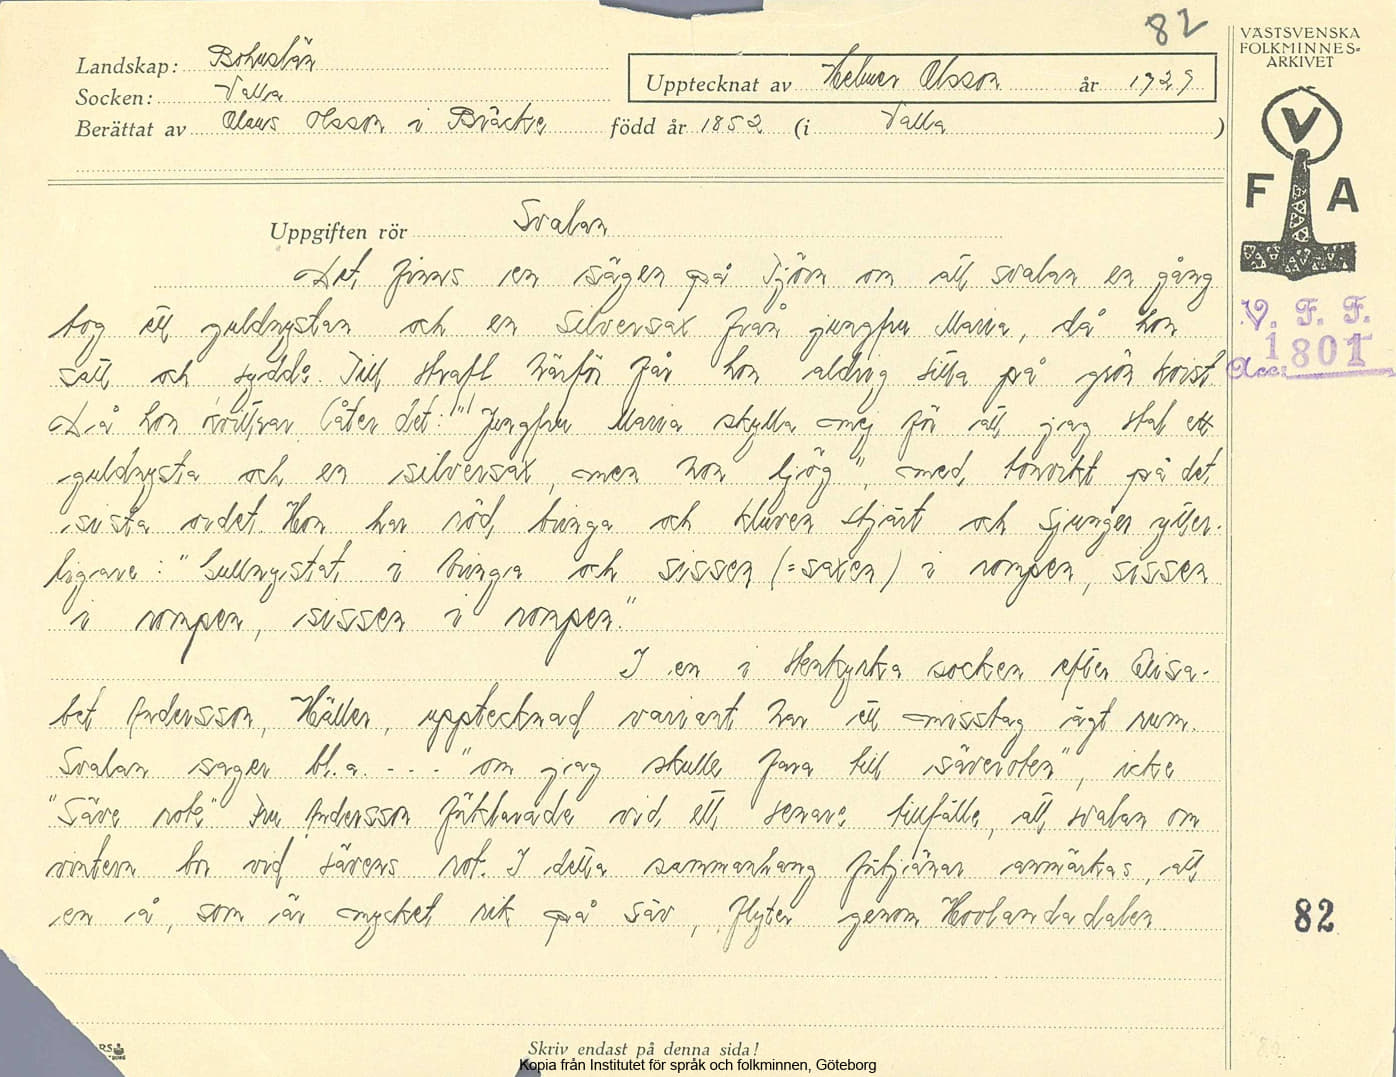 82
VÄSTSVENSKA
FOLKMINNES-
ARKIVET
Landskap: Bohuslän
Upptecknat av Helmer Olsson år 1929
Socken: Valla
Berättat av Olaus Olsson i Bräcke född år 1852 (i Valla )
V
F A
V. F. F.
Acc. 1801
Uppgiften rör Svalan
Det finns en sägen på Tjörn om att svalan en gång
tog ett guldnystan och en silversax från jungfru Maria, då hon
satt och sydde. Till straff härför får hon aldrig sitta på grön kvist.
Då hon kvittrar låter det: "Jungfru Maria skylla mej för att jag stal ett
guldnysta och en silversax, men hon ljög", med tonvikt på det
sista ordet. Hon har röd bringa och kluven stjärt och sjunger ytter-
ligare: "Gullnystat i bringa och sissen (=saxen) i rompen, sissen
i rompen, sissen i rompen."
I en i Stenkyrka socken efter Elisa-
bet Andersson, Hällen, upptecknad variant har ett misstag ägt rum.
Svalan säger bl.a. - - - "om jag skulle fara till säveroten", icke
"Säve rote" Fru Andersson förklarade vid ett senare tillfälle, att svalan om
vintern bor vid sävens rot. I detta sammanhang förtjänar anmärkas, att
en å, som är mycket rik på säv, flyter genom Hovlandadalen.
82
Skriv endast på denna sida!
Kopia från Institutet för språk och folkminnen, Göteborg